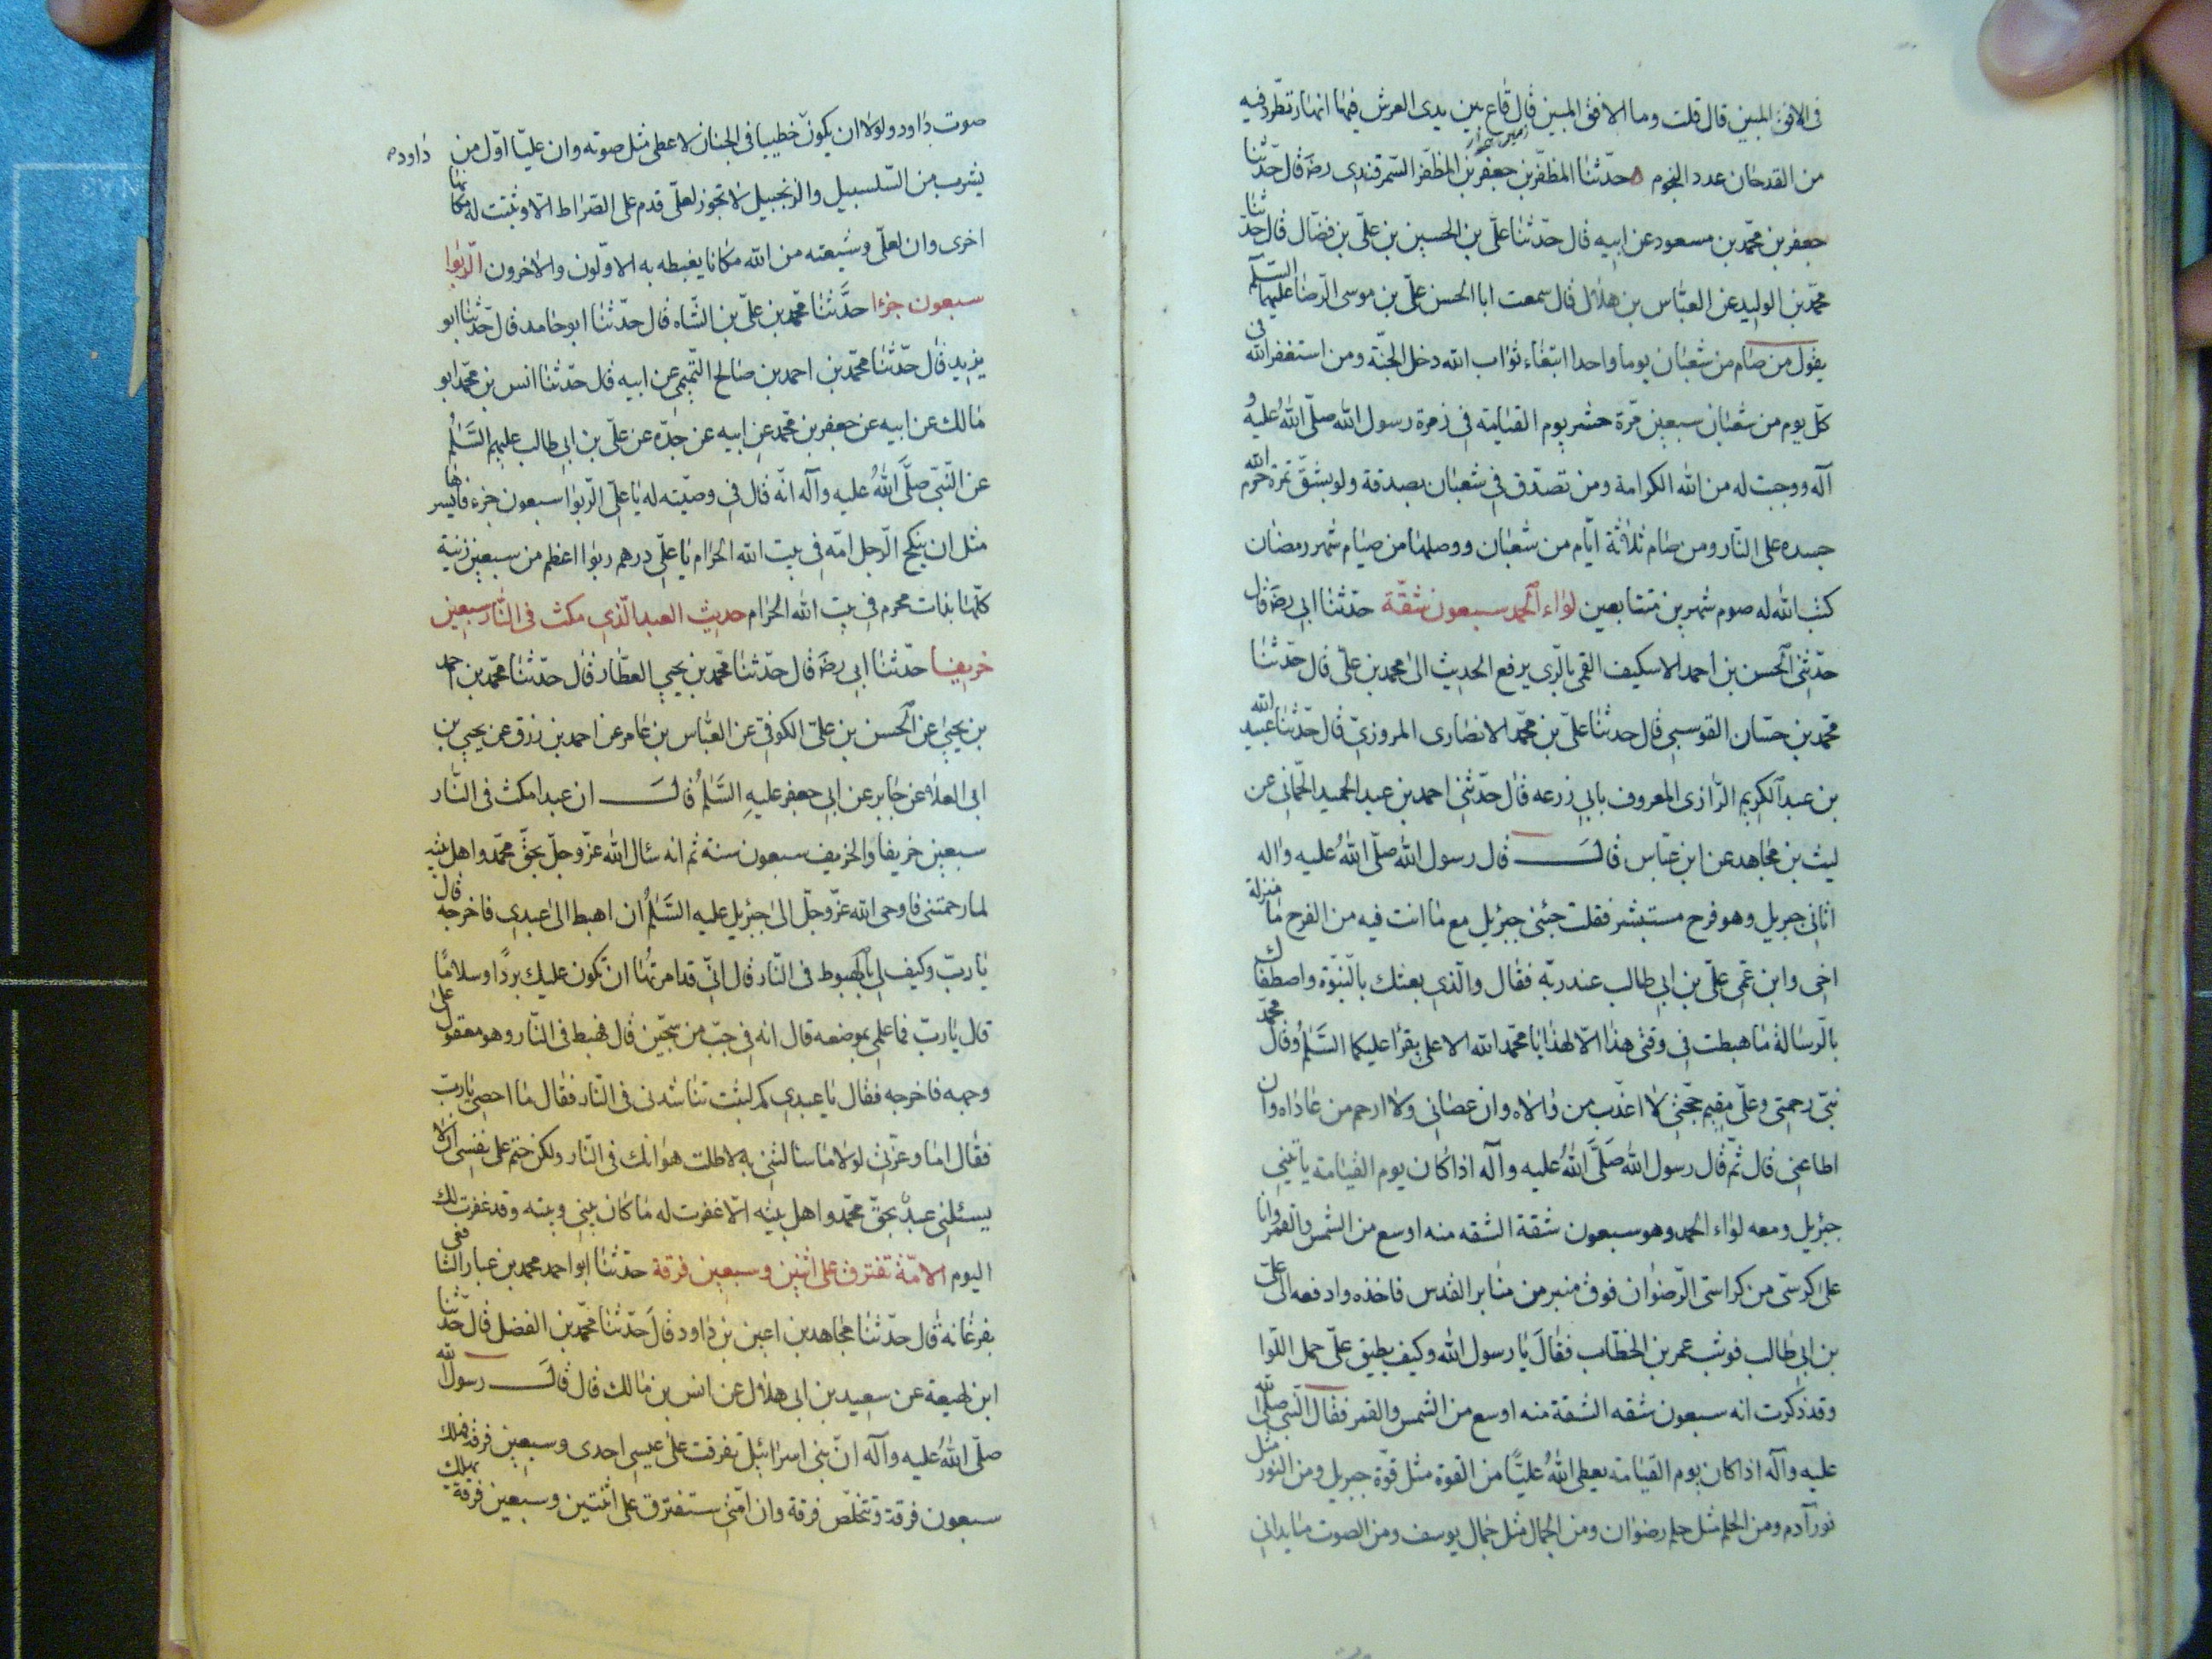 فى الافق المبين قال قلت وما الافق المبين قال قاع بين يدى العرش فيها انهار تطرد فيه
من القدحان عدد النجوم حدّثنا المظفّر بن جعفر بن المظفّر السّمرقندى رضه قال حدّثنا
جعفر بن محمّد بن مسعود عن ابيه قال حدّثنا علّى بن الحسين بن علّى بن فضّال قال حدّثنا
محمّد بن الوليد عن العبّاس بن هلال قال سمعت ابا الحسن علّى بن موسى الرّضا عليهما السّلم
يقول من صام من شعبان يوما واحدا ابتغاء ثواب الله دخل الجنّة ومن استغفر الله فى
كلّ يوم من شعبان سبعين مرّة حشر يوم القيامة فى زمرة رسول الله صلّى الله عليه و
آله ووجبت له من الله الكرامة ومن تصدّق فى شعبان بصدقة ولو بشقّ تمرة حرم الله
جسده على النّار ومن صام ثلاثة ايّام من شعبان ووصلها من صيام شهر رمضان
كتب الله له صوم شهرين متتابعين لواء الحمد سبعون شقّة حدّثنا ابى رضه قال
حدّثنى الحسن بن احمد الاسكيف القمى بالرّى يرفع الحديث الى محمد بن علّى قال حدّثنا
محمّد بن حسّان القوسى قال حدثنا علّى بن محمّد الانصارى المروزىّ قال حدّثنا عبيد الله
بن عبد الكريم الرّازى المعروف بابى زرعه قال حدّثنى احمد بن عبد الحميد الحمّانى عن
ليث بن مجاهد عن ابن عبّاس قال قال رسول الله صلّى الله عليه واله
اتانى جبريل وهو فرح مستبشر فقلت حبيبى جبرئيل مع ما انت فيه من الفرح ما منزلة
اخى وابن عمّى علّى بن ابى طالب عند ربّه فقال والّذى بعثك بالنّبوّة واصطفاك
بالرّسالة ما هبطت فى وقتى هذا الّا لهذا يا محمّد الله الاعلى يقرأ عليكما السّلم وقال محمّد
نبىّ رحمتى وعلّى مقيم حجّتى لا اعذّب من والاه وان عصانى ولا ارحم من عاداه وان
اطاعنى قال ثمّ قال رسول الله صلّى الله عليه وآله اذا كان يوم القيامة ياتينى
جبرئيل ومعه لواء الحمد وهو سبعون شقة الشقه منه اوسع من الشمس والقمر وانا
على كرسّى من كراسىّ الرّضوان فوق منبر من منابر القدس فاخذه وادفعه الى علىّ
بن ابى طالب فوثب عمر بن الخطّاب فقال يا رسول الله وكيف يطيق علّى حمل اللّوا
وقد ذكرت انه سبعون شقه الشقة منه اوسع من الشمس والقمر فقال النّبى صلّى الله
عليه وآله اذا كان يوم القيامة يعطى الله عليّا من القوة مثل قوّة جبريل ومن النور مثل
نور آدم ومن الحلم مثل حلم رضوان ومن الجمال مثل جمال يوسف ومن الصوت ما يدانى
صوت داود ولولا ان يكون خطيبا فى الجنان لاعطى مثل صوته وان عليّا اوّل من
داود
يشرب من السّلسبيل والزنجبيل لا تجوز لعلّى قدم على الصّراط الّا وثبتت له مكانها
اخرى وان لعلّى وشيعته من الله مكانا يغبطه به الاوّلون والاخرون الرّبوا
سبعون جزءا حدّثنا محمّد بن علّى بن الشّاه قال حدّثنا ابو حامد قال حدّثنا ابو
يزيد قال حدّثنا محمّد بن احمد بن صالح التّميمى عن ابيه قال حدّثنا انس بن محمّد ابو
مالك عن ابيه عن جعفر بن محمّد عن ابيه عن جدّه عن علّى بن ابى طالب عليهم السّلم
عن النّبىّ صلّى الله عليه وآله انّه قال فى وصيّته له يا علىّ الرّبوا سبعون جزء فايسرها
مثل ان ينكح الرّجل امّه فى بيت الله الحرام يا علّى درهم ربوا اعظم من سبعين زنية
كلّها بذات محرم فى بيت الله الحرام حديث العبد الّذى مكث فى النّار سبعين
خريفا حدّثنا ابى رضه قال حدّثنا محمّد بن يحيى العطّار قال حدّثنا محمّد بن احمد
بن يحيى عن الحسن بن علىّ الكوفىّ عن العبّاس بن عامر عن احمد بن رزق عن يحيى بن
ابى العلاء عن جابر عن ابى جعفر عليه السّلم قال ان عبدا مكث فى النّار
سبعين خريفا والخريف سبعون سنة ثم انه سئال الله عزّ وجلّ بحقّ محمّد واهل بيته
لما رحمتنى فاوحى الله عزّ وجلّ الى جبرئيل عليه السّلم ان اهبط الى عبدى فاخرجه قال
يا ربّ وكيف لى بالهبوط فى النّار قال انّى قد امرتها ان تكون عليك بردًا وسلامًا
قال يا ربّ فما علمى بموضعه قال انه فى جبّ من سجّين قال فهبط فى النّار وهو معقول على
وجهه فاخرجه فقال يا عبدى كم لبثت تناشدنى فى النّار فقال ما احصى يا ربّ
فقال اما وعزّتى لولا ما سالتنى به لاطلت هوانك فى النّار ولكن حتم على نفسى ان لا
يسئلنى عبدٌ بحقّ محمّد واهل بيته الّا غفرت له ما كان بينى وبينه وقد غفرت لك
اليوم الامّة تفترق على اثنين وسبعين فرقة حدّثنا ابو احمد محمد بن جعفر الشافعى
بفرغانة قال حدّثنا مجاهد بن اعين بن داود قال حدّثنا محمّد بن الفضل قال حدّثنا
ابن لهيعة عن سعيد بن ابى هلال عن انس بن مالك قال قال رسول الله
صلّى الله عليه وآله انّ بنى اسرائيل تفرقت على عيسى احدى وسبعين فرقة فهلك
سبعون فرقة وتخلّص فرقة وان امّتى ستفترق على اثنتين وسبعين فرقة يهلك